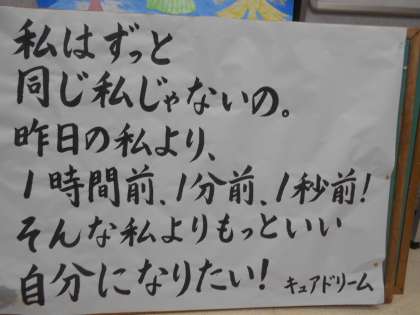 私はずっと
同じ私じゃないの。
昨日の私より、
1時間前、1分前、1秒前!
そんな私よりもっといい
自分になりたい! キュアドリーム